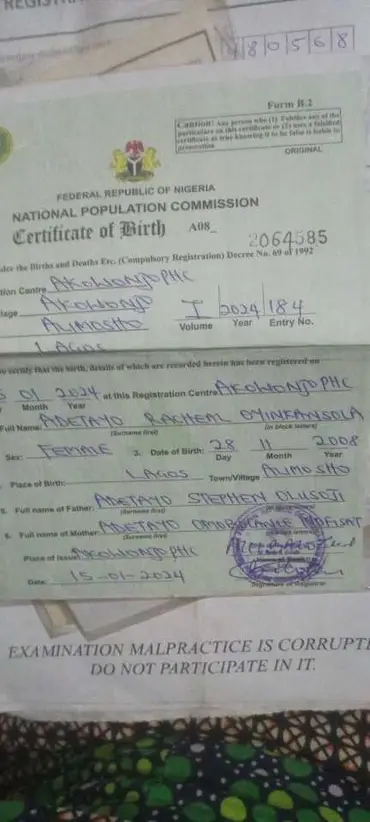 REGISTRA
480568
Form B.2
Caution: Any person who (1) Falsifies any of the
particulars on this certificate or (2) uses a falsified
certificate as true knowing it to be false is liable to
prosecution
ORIGINAL
FEDERAL REPUBLIC OF NIGERIA
NATIONAL POPULATION COMMISSION
Certificate of Birth A08_ 2064585
der the Births and Deaths Etc. (Compulsory Registration) Decree No. 69 of 1992
tion Centre AKOWONJO PHC
lage AKOWONJO I 2024 184
ALIMOSHO Volume Year Entry No.
LAGOS
certify that the birth, details of which are recorded herein has been registered on
01 2024 at this Registration Centre AKOWONJO PHC
Month Year
Full Name: ADETAYO RACHEAL OYINKANSOLA
(Surname first) (in block letters)
Sex: FEMALE 3. Date of Birth: 28 11 2008
Day Month Year
Place of Birth: LAGOS Town/Village ALIMOSHO
5. Full name of Father: ADETAYO STEPHEN OLUSOJI
(Surname first)
6. Full name of Mother: ADETAYO
(Surname first)
Place of Issue: AKOWONJO PHC
Date: 15-01-2024
Signature of Registrar
EXAMINATION MALPRACTICE IS CORRUPTI
DO NOT PARTICIPATE IN IT.